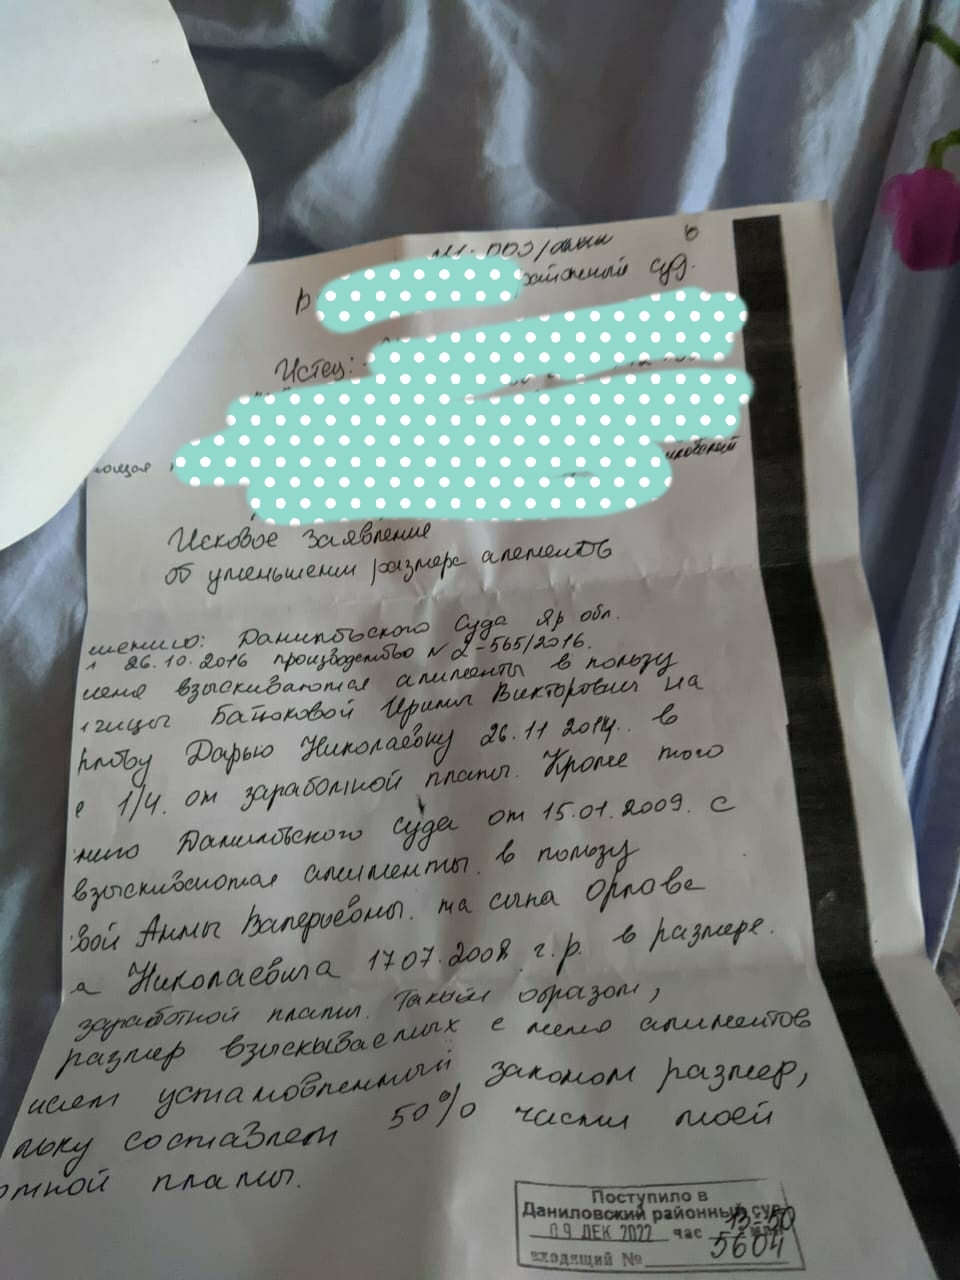 В районный суд.
Истец:
Исковое заявление
об уменьшении размера алементов
шению: Даниловского Суда Яр обл.
26.10.2016 производство № 2-565/2016.
меня взыскиваются алименты в пользу
Батюковой Ирины Викторовны на
Дарью Николаевну 26.11 2014.. в
е 1/4. от заработной платы. Кроме того
нию Даниловского суда от 15.01.2009. с
взыскиваются алименты. в пользу
вой Анны Валерьевны. на сына Орлова
а Николаевича 17 07.2008 г.р. в размере.
заработной платы. Таким образом,
размер взыскываемых с меня алиментов
шает установленный законом размер,
льку составляет 50% части моей
отной платы.
Поступило в
Даниловский районный суд
09 ДЕК 2022 час 13-50 мин
входящий № 5604